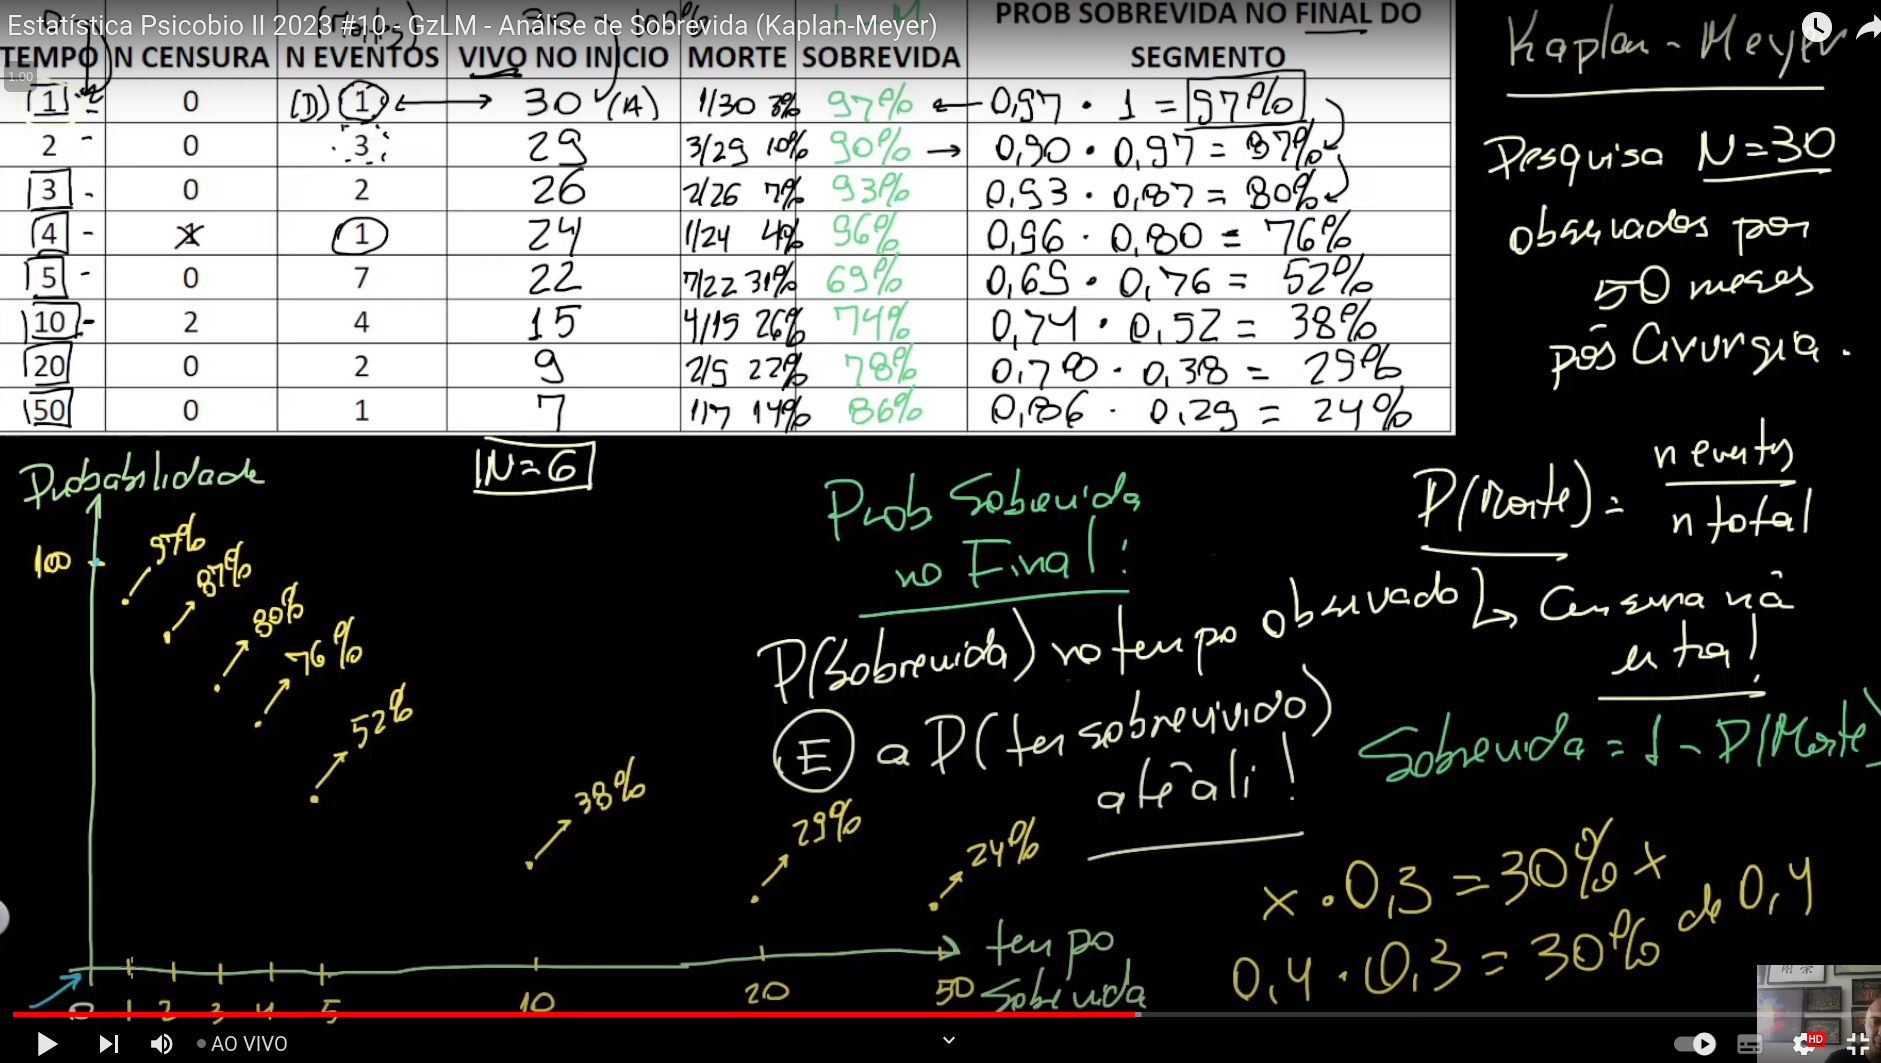 Estatística Psicobio II 2023 #10 - GzLM - Análise de Sobrevida (Kaplan-Meyer)
1.00
TEMPO N CENSURA N EVENTOS VIVO NO INICIO MORTE SOBREVIDA PROB SOBREVIDA NO FINAL DO SEGMENTO
1 0 (D) 1 30 (A) 1/30 3% 97% 0,97 · 1 = 97%
2 0 3 29 3/29 10% 90% 0,90 · 0,97 = 87%
3 0 2 26 2/26 7% 93% 0,93 · 0,87 = 80%
4 1 1 24 1/24 4% 96% 0,96 · 0,80 = 76%
5 0 7 22 7/22 31% 69% 0,69 · 0,76 = 52%
10 2 4 15 4/15 26% 74% 0,74 · 0,52 = 38%
20 0 2 9 2/9 22% 78% 0,78 · 0,38 = 29%
50 0 1 7 1/7 14% 86% 0,86 · 0,29 = 24%
N=6
Kaplan-Meyer
Pesquisa N=30
observados por
50 meses
pós Cirurgia.
Probabilidade
100
97%
87%
80%
76%
52%
38%
29%
24%
0 1 2 3 4 5 10 20 50
tempo
Sobrevida
Prob Sobrevida
no Final!
P(Sobrevida) no tempo observado
E a P(ter sobrevivido
até ali!
P(Morte) = n eventos
n total
Censura não
entra!
Sobrevida = 1 - P(Morte)
x · 0,3 = 30% x
0,4 · 0,3 = 30% de 0,4
AO VIVO
HD